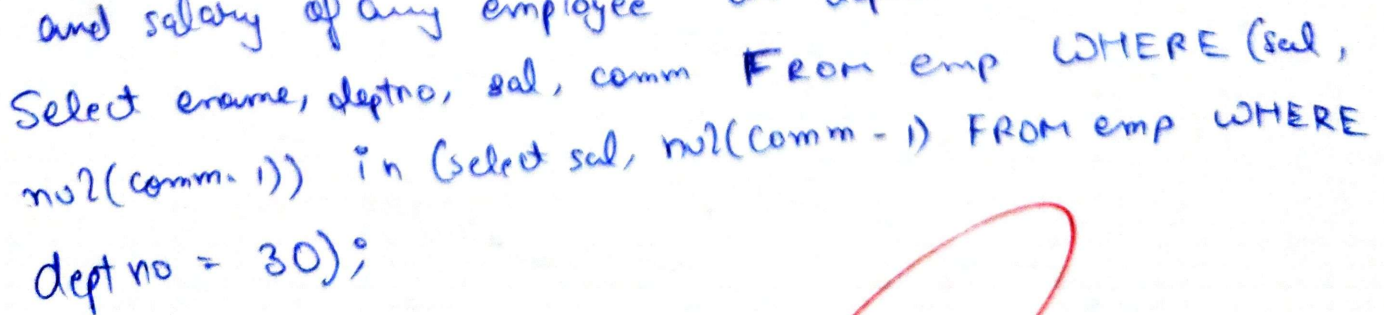 and salary of any employee
Select ename, deptno, sal, comm FROM emp WHERE (sal,
nvl(comm. 1)) in (select sal, nvl(comm - 1) FROM emp WHERE
deptno = 30);